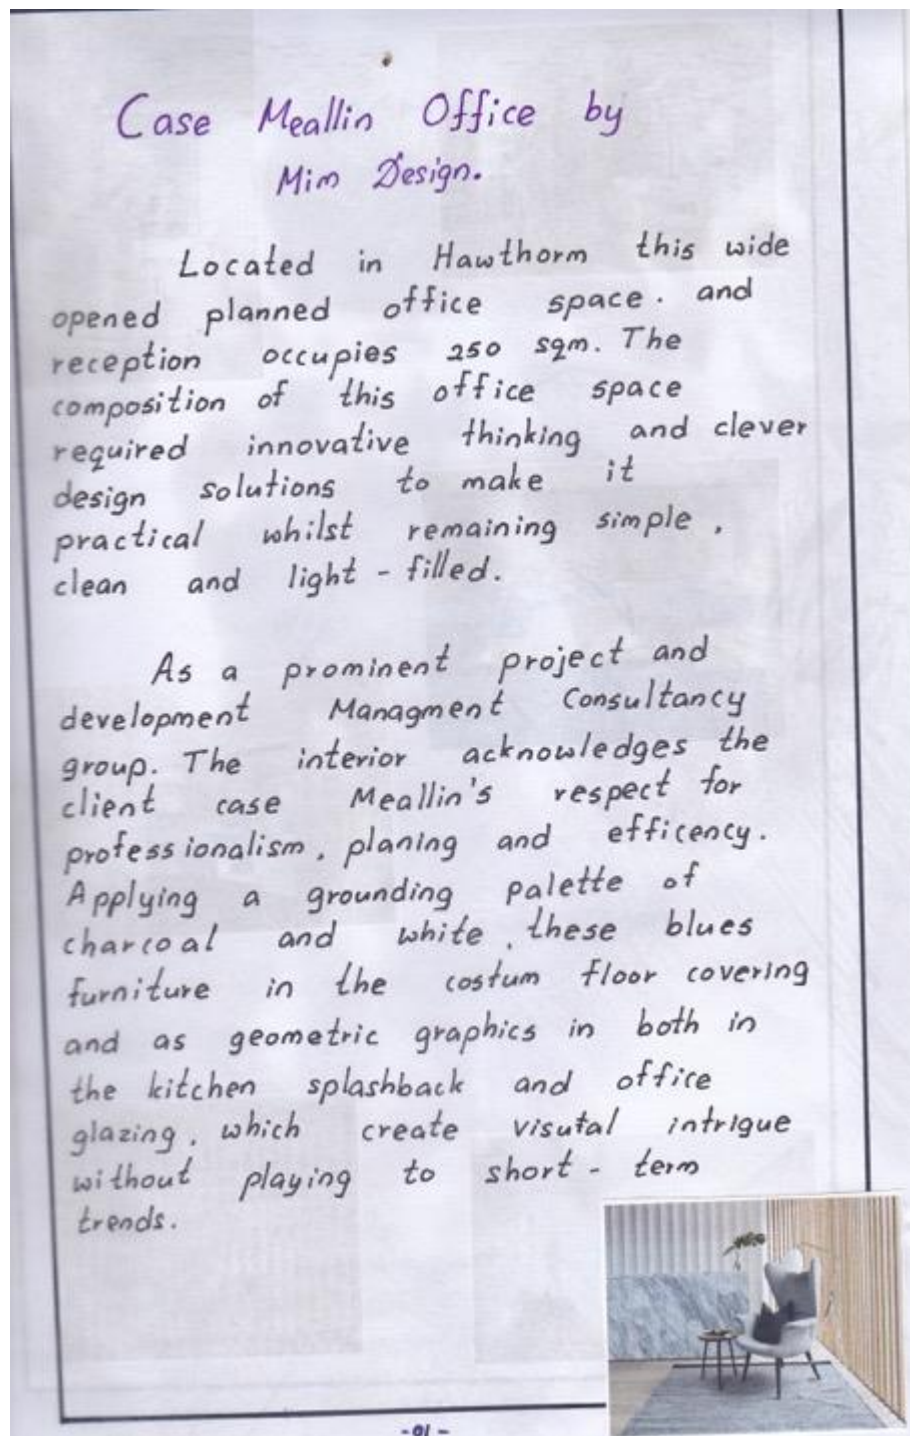 Case Meallin Office by
Mim Design.
Located in Hawthorm this wide
opened planned office space. and
reception occupies 250 sqm. The
composition of this office space
required innovative thinking and clever
design solutions to make it
practical whilst remaining simple,
clean and light - filled.
As a prominent project and
development Managment Consultancy
group. The interior acknowledges the
client case Meallin's respect for
professionalism, planing and efficency.
Applying a grounding palette of
charcoal and white, these blues
furniture in the costum floor covering
and as geometric graphics in both in
the kitchen splashback and office
glazing, which create visutal intrigue
without playing to short - term
trends.